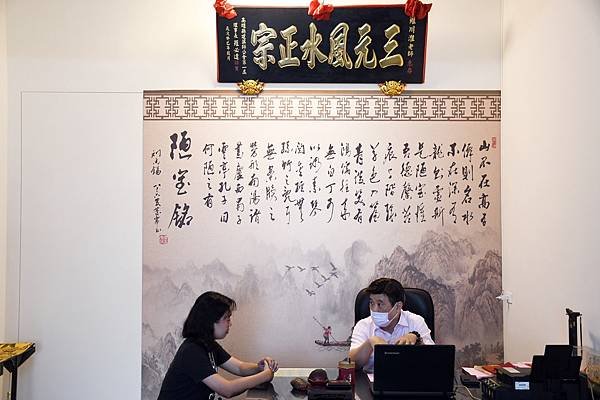 三元風水正宗
老師 惠存
山不在高有
仙則名水
不在深有
龍則靈斯
是陋室惟
吾德馨苔
痕上階綠
草色入簾
青談笑有
鴻儒往來
無白丁可
以調素琴
閱金經無
絲竹之亂耳
無案牘之
勞形南陽諸
葛廬西蜀子
雲亭孔子曰
何陋之有
陋室銘
劉禹錫
lenovo